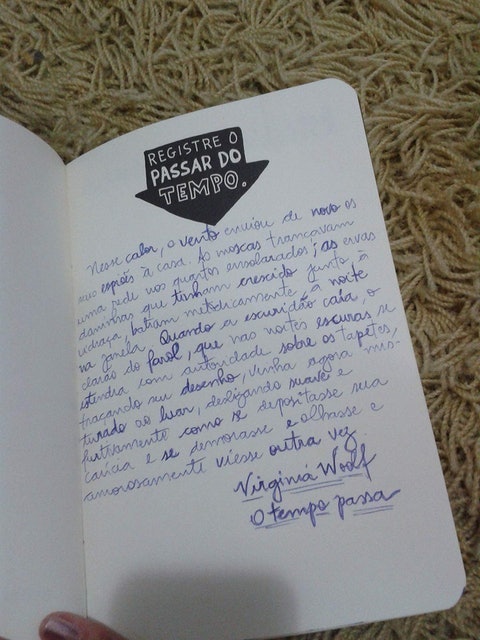 REGISTRE O
PASSAR DO
TEMPO.
Nesse calor, o vento enviou de novo os
seus espiões à casa. As moscas trançavam
uma rede nos quartos ensolarados; as ervas
daninhas que tinham crescido junto à
vidraça, batiam metodicamente, à noite
na janela. Quando a escuridão caía, o
clarão do farol, que nas noites escuras se
estendia com autoridade sobre os tapetes,
traçando seu desenho, vinha agora mis-
turado ao luar, deslizando suave e
furtivamente como se depositasse sua
carícia e se demorasse e olhasse e
amorosamente viesse outra vez
Virginia Woolf
O tempo passa